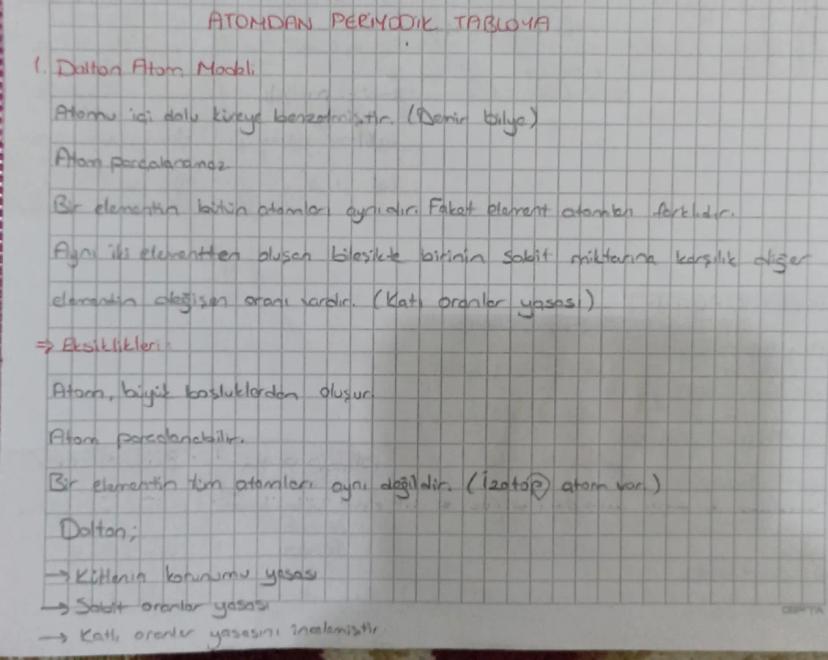 ATOMDAN PERİYODİK TABLOYA
1. Dalton Atom Modeli
Atomu içi dolu küreye benzetmiştir. (Demir bilye)
Atom parçalanamaz.
Bir elementin bütün atomları aynıdır. Fakat element atomları farklıdır.
Aynı iki elementten oluşan bileşikte birinin sabit miktarına karşılık diğer
elementin değişen oranı vardır. (Katlı oranlar yasası)
⇒ Eksiklikleri:
Atom, büyük boşluklardan oluşur.
Atom parçalanabilir.
Bir elementin tüm atomları aynı değildir. (İzotop atom var.)
Dalton;
→ Kütlenin korunumu yasası
→ Sabit oranlar yasası
→ Katlı oranlar yasasını incelemiştir.